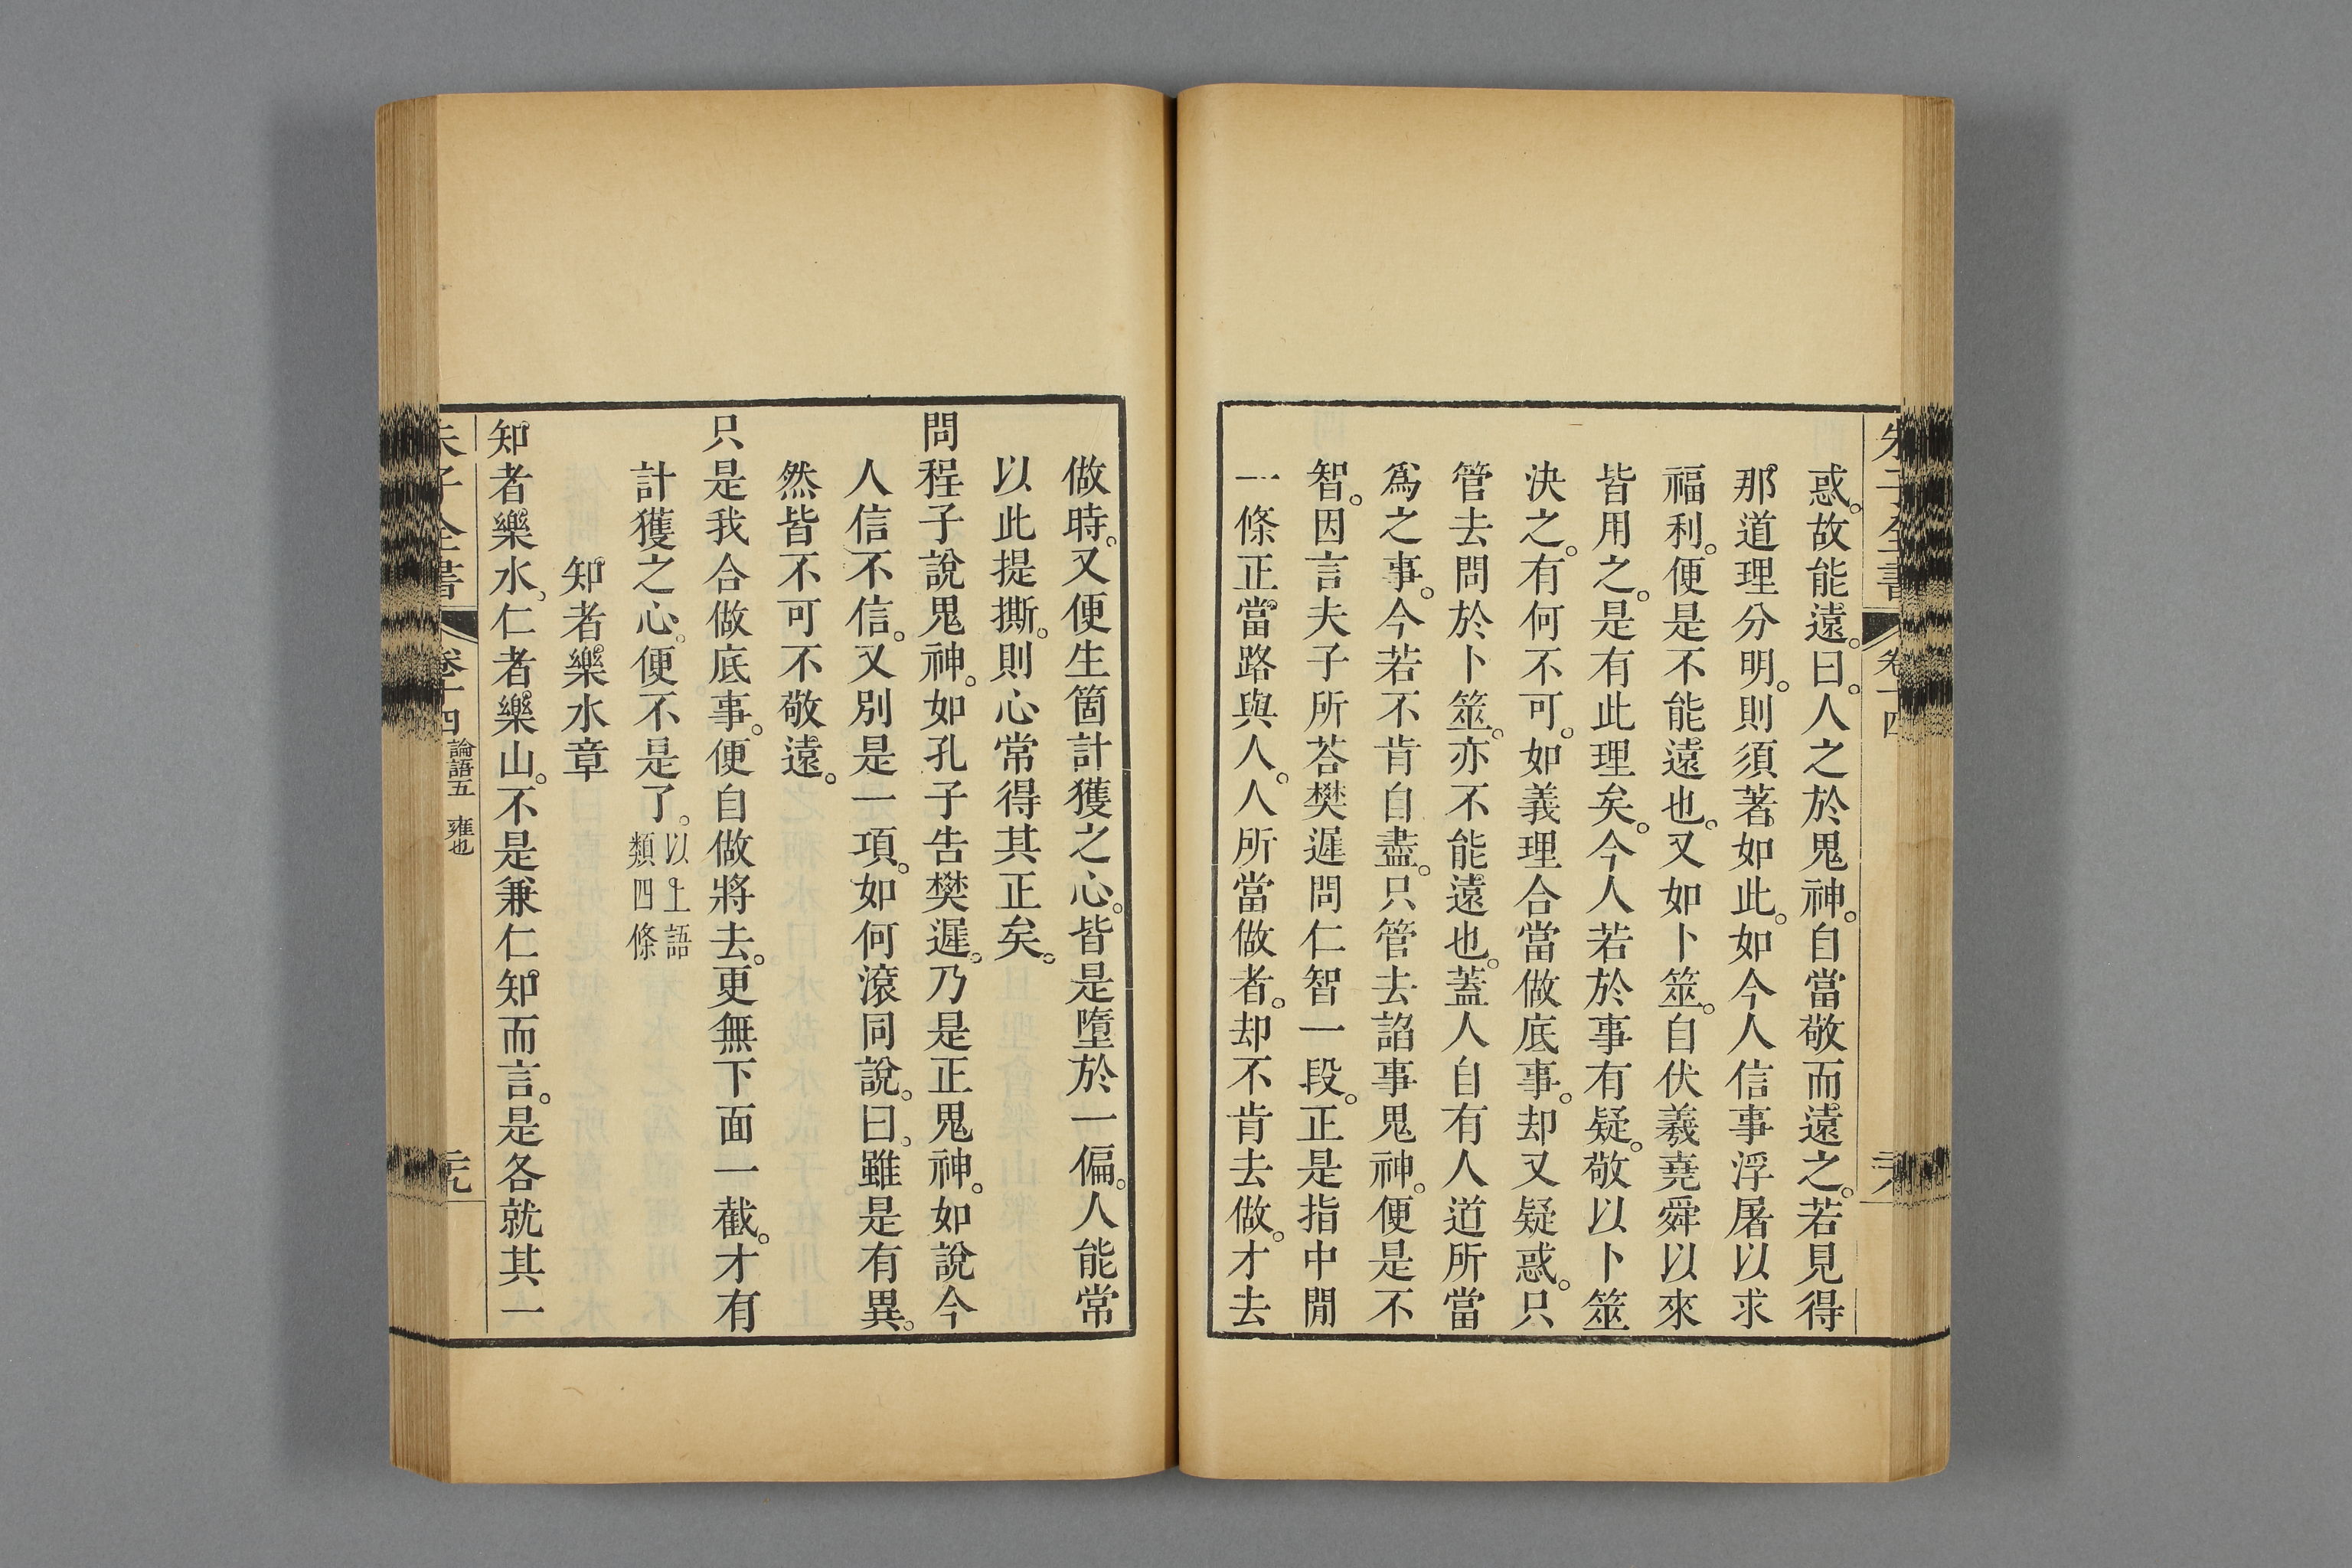 朱子全書 卷十四 二十八
惑。故能遠。曰。人之於鬼神。自當敬而遠之。若見得
那道理分明。則須著如此。如今人信事浮屠以求
福利。便是不能遠也。又如卜筮。自伏羲堯舜以來
皆用之。是有此理矣。今人若於事有疑。敬以卜筮
決之。有何不可。如義理合當做底事。却又疑惑。只
管去問於卜筮。亦不能遠也。蓋人自有人道所當
爲之事。今若不肯自盡。只管去諂事鬼神。便是不
智。因言夫子所荅樊遲問仁智一段。正是指中閒
一條正當路與人。人所當做者。却不肯去做。才去
做時。又便生箇計獲之心。皆是墮於一偏。人能常
以此提撕。則心常得其正矣。
問程子說鬼神。如孔子告樊遲。乃是正鬼神。如說今
人信不信。又別是一項。如何滾同說。曰。雖是有異。
然皆不可不敬遠。
只是我合做底事。便自做將去。更無下面一截。才有
計獲之心。便不是了。以上語類四條
知者樂水章
知者樂水、仁者樂山。不是兼仁知而言。是各就其一
朱子全書 卷十四 論語五 雍也 二十九